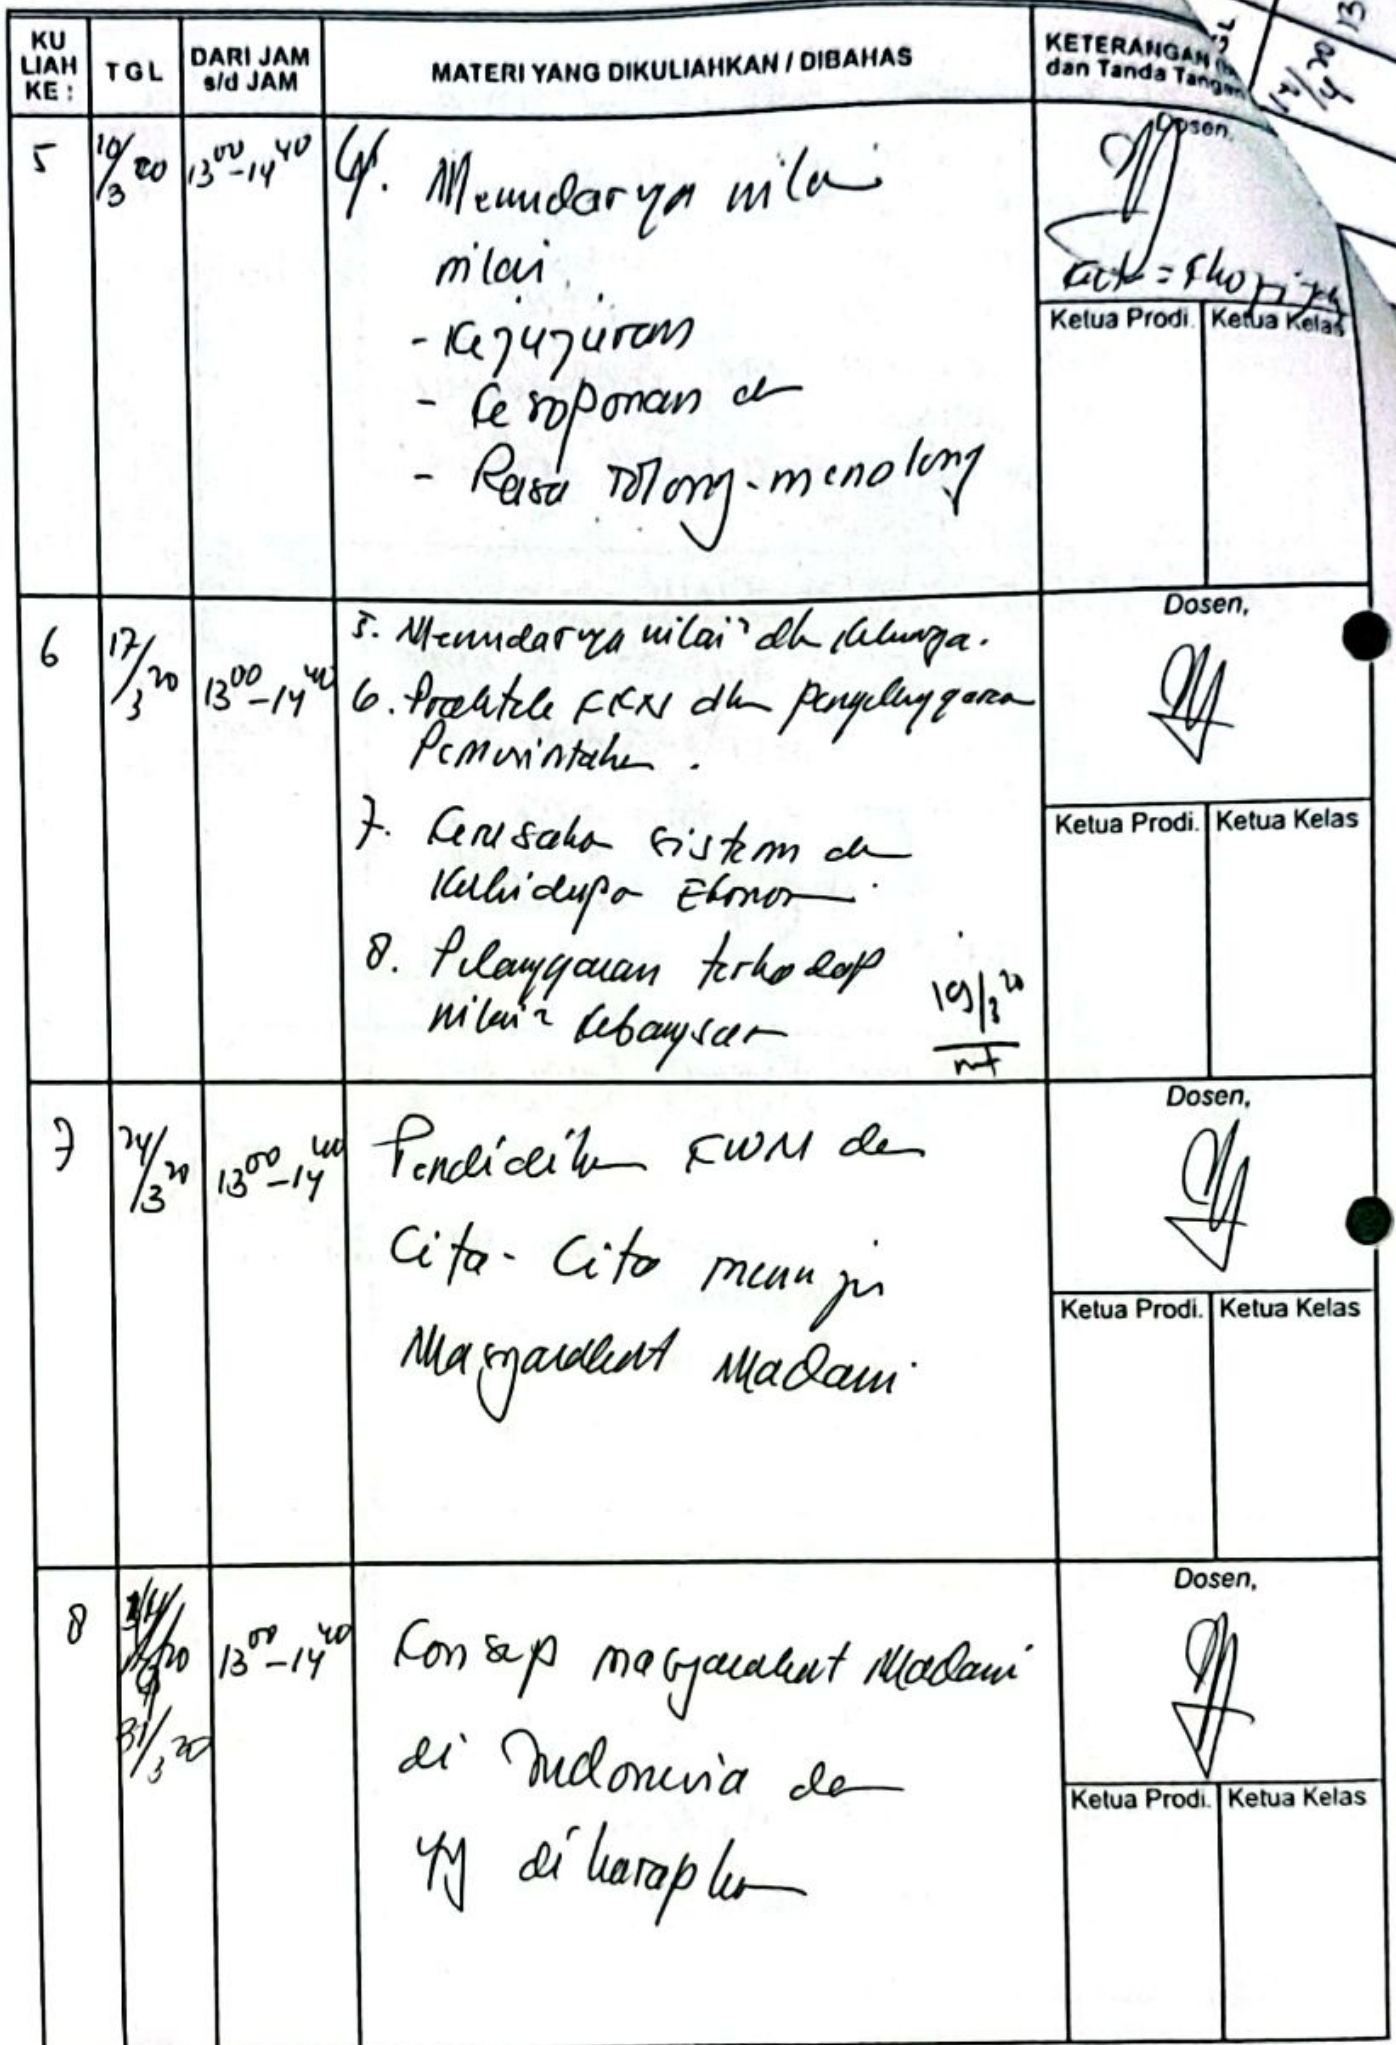 KU LIAH KE :
TGL
DARI JAM s/d JAM
MATERI YANG DIKULIAHKAN / DIBAHAS
KETERANGAN
dan Tanda Tangan
5
10/3 20
13⁰⁰-14⁴⁰
4. Memudarnya nilai
nilai
- Kejujuran
- Kesopanan dn
- Rasa Tolong-menolong
Dosen,
Ketua Prodi. Ketua Kelas
6
17/3 20
13⁰⁰-14⁴⁰
5. Memudarnya nilai² dlm keluarga.
6. Praktek KKN dlm penyelenggaraan
Pemerintahan.
7. Kerusakan sistem dn
Kehidupan Ekonomi
8. Pelanggaran terhadap
nilai² kebangsaan
19/3 20
Dosen,
Ketua Prodi. Ketua Kelas
7
24/3 20
13⁰⁰-14⁴⁰
Pendidikan KWN dan
Cita-Cita menuju
Masyarakat Madani
Dosen,
Ketua Prodi. Ketua Kelas
8
31/3 20
13⁰⁰-14⁴⁰
Konsep masyarakat Madani
di Indonesia dan
yg diharapkan
Dosen,
Ketua Prodi. Ketua Kelas